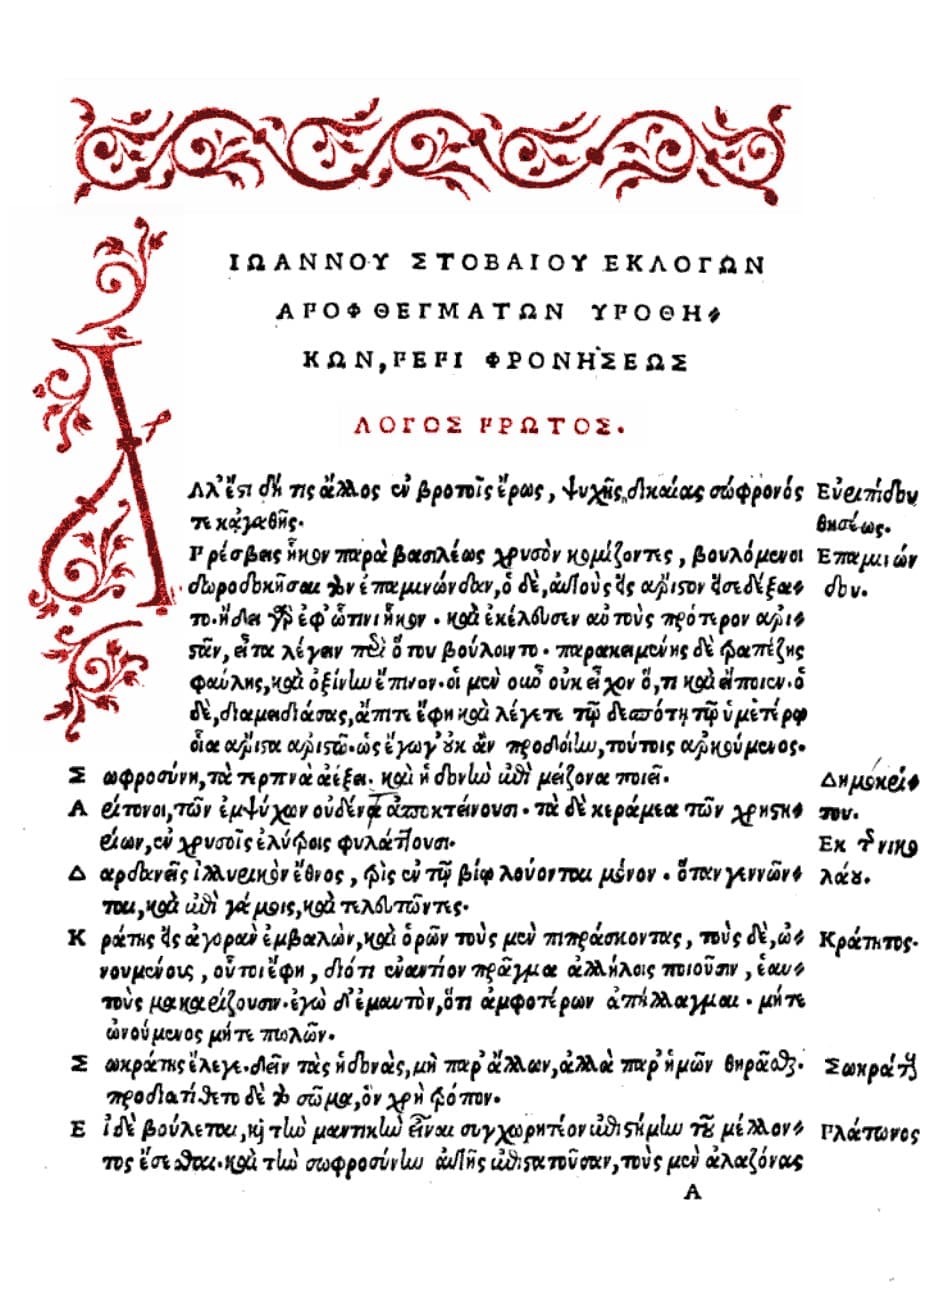 ΙΩΑΝΝΟΥ ΣΤΟΒΑΙΟΥ ΕΚΛΟΓΩΝ
ΑΠΟΦΘΕΓΜΑΤΩΝ ΥΠΟΘΗ-
ΚΩΝ, ΠΕΡΙ ΦΡΟΝΗΣΕΩΣ
ΛΟΓΟΣ ΠΡΩΤΟΣ.
Αλλ' ἔστι δή τις ἄλλος ἐν βροτοῖς ἔρως, ψυχῆς δικαίας σώφρονός Εὐριπίδου
τε κἀγαθῆς. θησέως.
Πρέσβεις ἧκον παρὰ βασιλέως χρυσὸν κομίζοντες, βουλόμενοι Επαμινών
δωροδοκῆσαι τὸν ἐπαμινώνδαν, ὁ δὲ, αὐτοὺς εἰς ἄριστον εἰσεδέξα- δου.
το. ἤδει γὰρ ἐφ' ὧτινι ἧκον. καὶ ἐκέλευσεν αὐτοὺς πρότερον ἀρι-
στᾶν, εἶτα λέγειν περὶ ὅτου βούλοιντο. παρακειμένης δὲ τραπέζης
φαύλης, καὶ ὀξίνην ἔπινον. οἱ μὲν οὖν οὐκ εἶχον ὅ, τι καὶ εἴποιεν. ὁ
δὲ, διαμειδιάσας, ἄπιτε ἔφη καὶ λέγετε τῷ δεσπότῃ τῷ ὑμετέρῳ
οἷα ἄριστα ἀριστῶ. ὡς ἔγωγ' οὐκ ἂν προδοίην, τούτοις ἀρκούμενος.
Σ ωφροσύνη, τὰ τερπνὰ ἀέξει. καὶ ἡδονὴν ἐπὶ μείζονα ποιεῖ. Δημοκρί-
Α ρίτονοι, τῶν ἐμψύχων οὐδένα ἀποκτείνουσι. τὰ δὲ κεράμεα τῶν χρηστη- του.
ρίων, ἐν χρυσοῖς ἐλύτροις φυλάττουσι. Εκ τῶν νικο
Δ αρδανεῖς ἰλλυρικὸν ἔθνος, τρὶς ἐν τῷ βίῳ λούονται μόνον. ὅταν γεννῶν- λάου.
ται, καὶ ἐπὶ γάμοις, καὶ τελευτῶντες.
Κ ράτης εἰς ἀγορὰν ἐμβαλὼν, καὶ ὁρῶν τοὺς μὲν πιπράσκοντας, τοὺς δὲ, ὠ- Κράτητος.
νουμένους, οὗτοι ἔφη, διότι ἐναντίον πρᾶγμα ἀλλήλοις ποιοῦσιν, ἑαυ-
τοὺς μακαρίζουσιν. ἐγὼ δ' ἐμαυτὸν, ὅτι ἀμφοτέρων ἀπήλλαγμαι. μήτε
ὠνούμενος μήτε πωλῶν.
Σ ωκράτης ἔλεγε. δεῖν τὰς ἡδονὰς, μὴ παρ' ἄλλων, ἀλλὰ παρ' ἡμῶν θηρᾶσθαι. Σωκράτους
προδιατίθετο δὲ τὸ σῶμα, ὃν χρὴ τρόπον.
Ε ἰ δὲ βούλεται, καὶ τὴν μαντικὴν εἶναι συγχωρητέον ἐπιστήμην τοῦ μέλλον- Πλάτωνος
τος ἔσεσθαι. καὶ τὴν σωφροσύνην αὐτῆς ἐπιστατοῦσαν, τοὺς μὲν ἀλαζόνας
Α